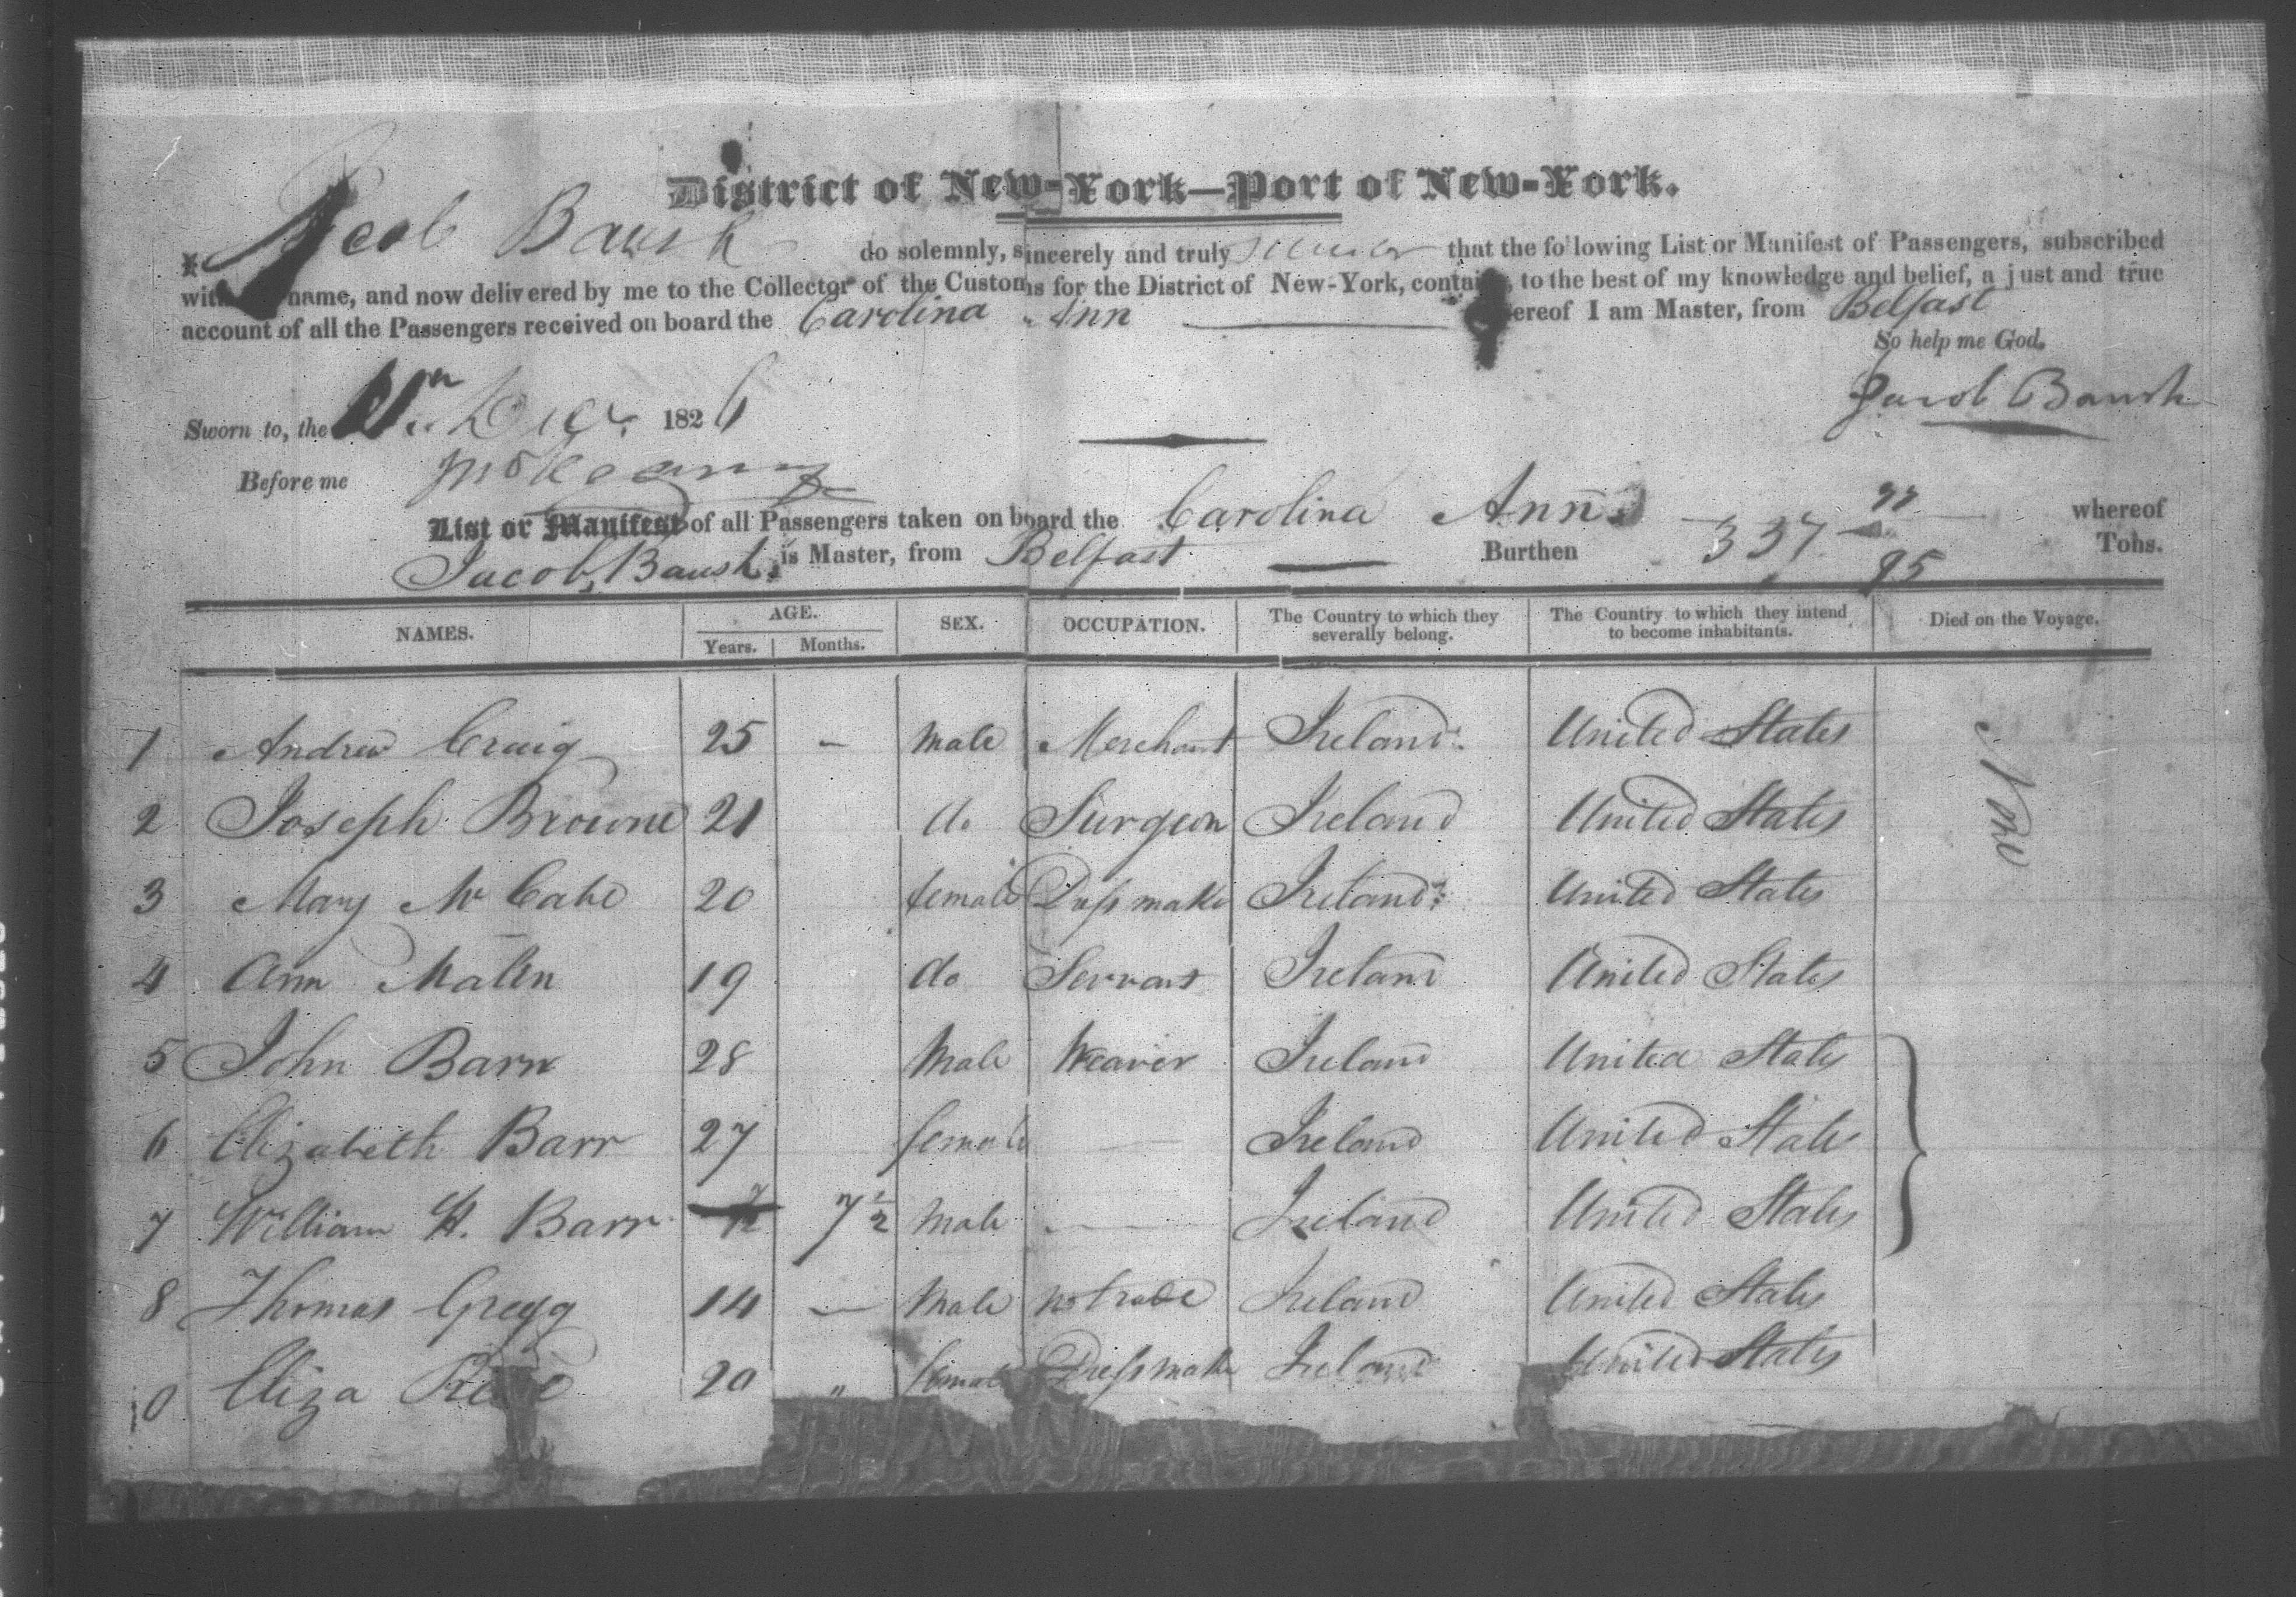 District of New-York—Port of New-York.
I, Jacob Baush do solemnly, sincerely and truly swear that the following List or Manifest of Passengers, subscribed
with name, and now delivered by me to the Collector of the Customs for the District of New-York, contains, to the best of my knowledge and belief, a just and true
account of all the Passengers received on board the Carolina Ann whereof I am Master, from Belfast
So help me God.
Jacob Baush
Sworn to, the Decr. 1826
Before me
List or Manifest of all Passengers taken on board the Carolina Ann whereof
Jacob Baush is Master, from Belfast Burthen 337 Tons.
95
NAMES. AGE. SEX. OCCUPATION. The Country to which they severally belong. The Country to which they intend to become inhabitants. Died on the Voyage.
Years. Months.
1 Andrew Craig 25 – Male Merchant Ireland United States None
2 Joseph Browne 21 do Surgeon Ireland United States
3 Mary McCabe 20 female Dress make Ireland United States
4 Ann Malen 19 do Servant Ireland United States
5 John Barr 28 Male Weaver Ireland United States
6 Elizabeth Barr 27 female — Ireland United States
7 William H. Barr 7½ Male — Ireland United States
8 Thomas Gregg 14 — Male no trade Ireland United States
Eliza 20 " female Dress make Ireland United States